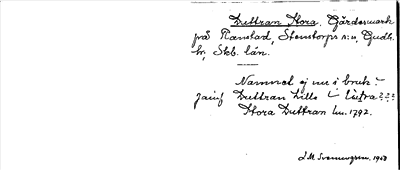 Duttran Stora, Gärdesmark
på Ranstad, Stenstorps s:n, Gudh.
h., Skb. län.
Namnet ej nu i bruk.
Jämf Duttran Lilla
Stora Duttran lm. 1792.
J M Svennungsson. 1903